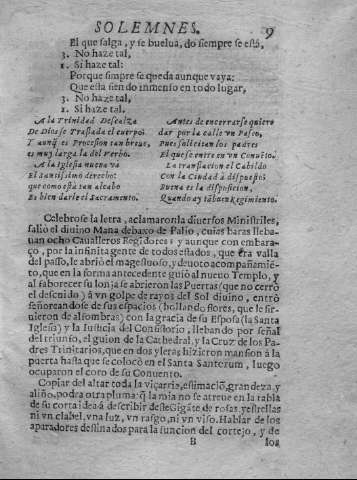 SOLEMNES. 9
El que salga, y se buelua, do siempre se està,
3. No haze tal,
1. Si haze tal:
Porque simpre se queda aunque vaya:
Que esta siendo inmenso en todo lugar,
3. No haze tal,
1. Si haze tal:
A la Trinidad Descalza
De Dios se Traslada el cuerpo
Y aunq̃ es Procesion tan breue,
es muy larga la del Verbo.
A la Iglesia nueva va
El Santissimo derecho:
que como està tan al cabo
Es bien darle el Sacramento.
Antes de encerrarse quiere
dar por la calle vn Paseo,
Pues solicitan los padres
El que se entre en vn Conuẽto.
La translacion el Cabildo
Con la Ciudad à dispuesto
Buena es la disposicion,
Quando ay tãbuen Regimiento.
Celebrose la letra, aclamaronla diuersos Ministriles,
saliò el diuino Manà debaxo de Palio, cuias baras lleba-
uan ocho Caualleros Regidores; y aunque con embara-
ço, por la infinita gente de todos estados, que era valla
del passo, le briò el magestuoso, y deuoto acompañamiẽ-
to, que en la forma antecedente guiò al nuevo Templo, y
al faborecer su lonja se abrieron las Puertas (que no cerrò
el descuido) à vn golpe de rayos del Sol diuino, entrò
señoreandose de sus espacios (hollando flores, que le sir-
uieron de alfombras) con la gracia de su Esposa (la Santa
Iglesia) y la Iusticia del Consistorio, llebando por señal
del triunfo, el guion de la Cathedral, y la Cruz de los Pa-
dres Trinitarios, que en dos yleras hizieron mansion à la
puerta hasta que se colocò en el Santa Santorum, luego
ocuparon el coro de su Conuento.
Copiar del altar toda la viçarria, estimaciõ, grandeza, y
aliño, podra otra pluma: q̃ la mia no se atreue en la tabla
de su corta idea à describir deste Gigãte de rosas, y estrellas
ni vn clabel, vna luz, vn rasgo, ni vn viso. Hablar de los
aparadores destinados para la funcion del cortejo, y de
B los